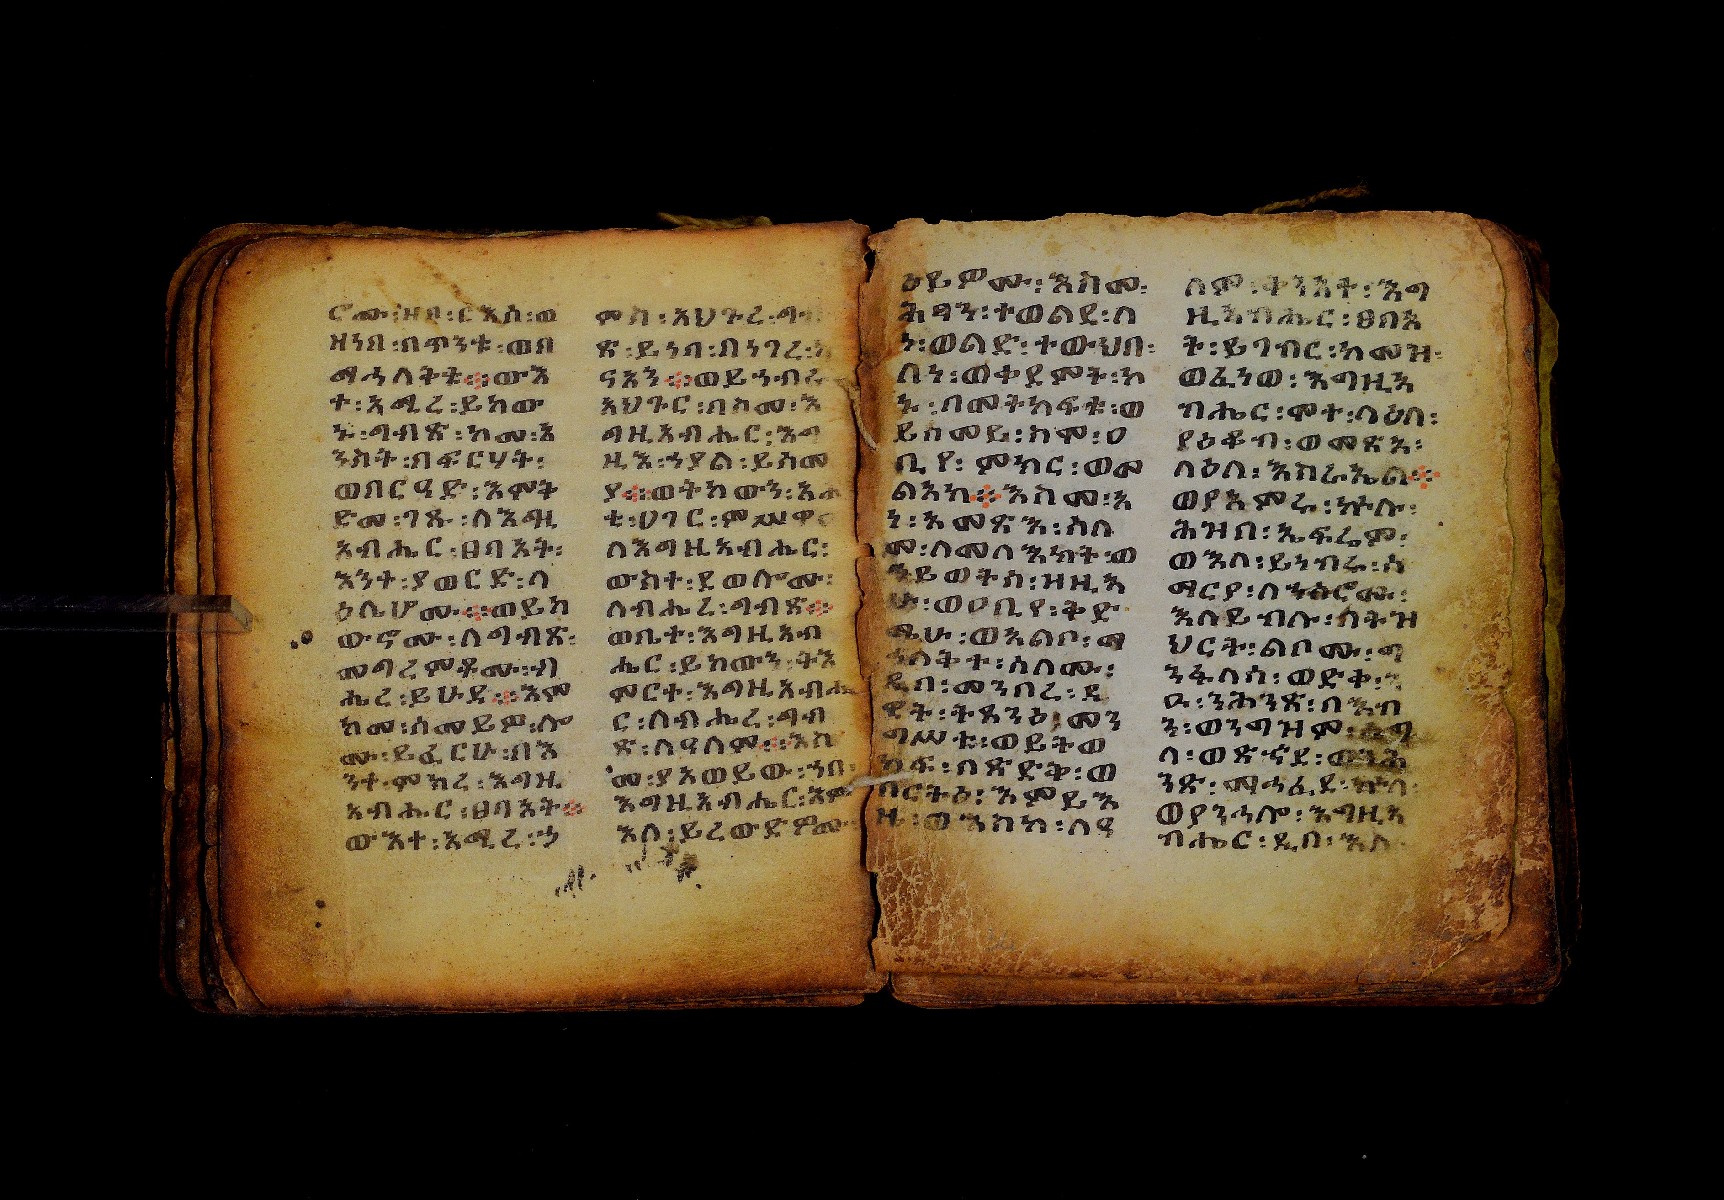 ሮሙ፡ዘበ፡ርእሰ፡ወ
ዘነበ፡በጥንቱ፡ወበ
ማኅለቅቱ፨ውእ
ተ፡አሚረ፡ይከው
ኑ፡ግብጽ፡ከመ፡አ
ንስት፡በፍርሃት፡
ወበርዓድ፡እምቅ
ድመ፡ገጹ፡ለእግዚ
አብሔር፡ፀባኦት፡
እንተ፡ያወርድ፡ላ
ዕሌሆሙ፨ወይከ
ውኖሙ፡ለግብጽ፡
መግረምቶሙ፡ብ
ሔረ፡ይሁዳ፨እም
ከመ፡ሰመይዎ፡ሎ
ሙ፡ይፈርሁ፡በእ
ንተ፡ምክረ፡እግዚ
አብሔር፡ፀባኦት፨
ውእተ፡አሚረ፡ኃ
ምስ፡አህጉረ፡ግብ
ጽ፡ይነባ፡በነገረ፡ከ
ናአን፨ወይኀብራ
አህጉር፡በስመ፡እ
ግዚአብሔር፡እግ
ዚአ፡ኀያል፡ይሰመ
ያ፨ወትከውን፡አሐ
ቲ፡ሀገር፡ምሥዋዐ
ለእግዚአብሔር፡
ውስተ፡ደወሎሙ፡
ለብሔረ፡ግብጽ፨
ወቤተ፡እግዚአብ
ሔር፡ይከውን፡ትእ
ምርተ፡እግዚአብሔ
ር፡ለብሔረ፡ግብ
ጽ፡ለዓለም፨እስ
መ፡ያአወይው፡ኀበ
እግዚአብሔር፡እም
እለ፡ይረውድዎሙ
ዕይዎሙ፡እስመ፡
ሕፃን፡ተወልደ፡ለ
ነ፡ወልድ፡ተውህበ፡
ለነ፡ወቀደምት፡ኮ
ኑ፡በመትከፍቱ፡ወ
ይሰመይ፡ስሞ፡ዐ
ቢየ፡ምክር፡ወመ
ልአከ፨እስመ፡አ
ነ፡አመጽእ፡ሰላ
መ፡ለመላእክት፡ወ
ሕይወት፡ዝዚአ
ሁ፡ወዐቢየ፡ቅድ
ሜሁ፡ወአልቦ፡ማ
ኅለቅተ፡ሰላሙ፡
ዲበ፡መንበረ፡ዳ
ዊት፡ትጸንዕ፡መን
ግሥቱ፡ወይትወ
ከፍ፡በጽድቅ፡ወ
በርትዕ፡እምይእ
ዜ፡ወእስከ፡ለዓ
ለም፡ቅንአት፡እግ
ዚአብሔር፡ፀባኦ
ት፡ይገብር፡ከመዝ፡
ወፈነወ፡እግዚአ
ብሔር፡ሞተ፡ላዕለ፡
ያዕቆብ፡ወመጽአ፡
ላዕለ፡እስራኤል፨
ወያአምራ፡ኵሉ፡
ሕዝበ፡ኤፍሬም፡
ወእለ፡ይነብሩ፡ሰ
ማርያ፡በንዕሮሙ፡
እለይብሉ፡በትዝ
ህርት፡ልቦሙ፡ግ
ንፋለሰ፡ወድቀ፡ን
ዑ፡ንሕንጽ፡በእብ
ን፡ወንግዝም፡ሰግ
ላ፡ወጽኁደ፡ወንሕ
ንጽ፡ማኅፈደ፡ለነ፡
ወያንኅሎ፡እግዚአ
ብሔር፡ዲበ፡እለ